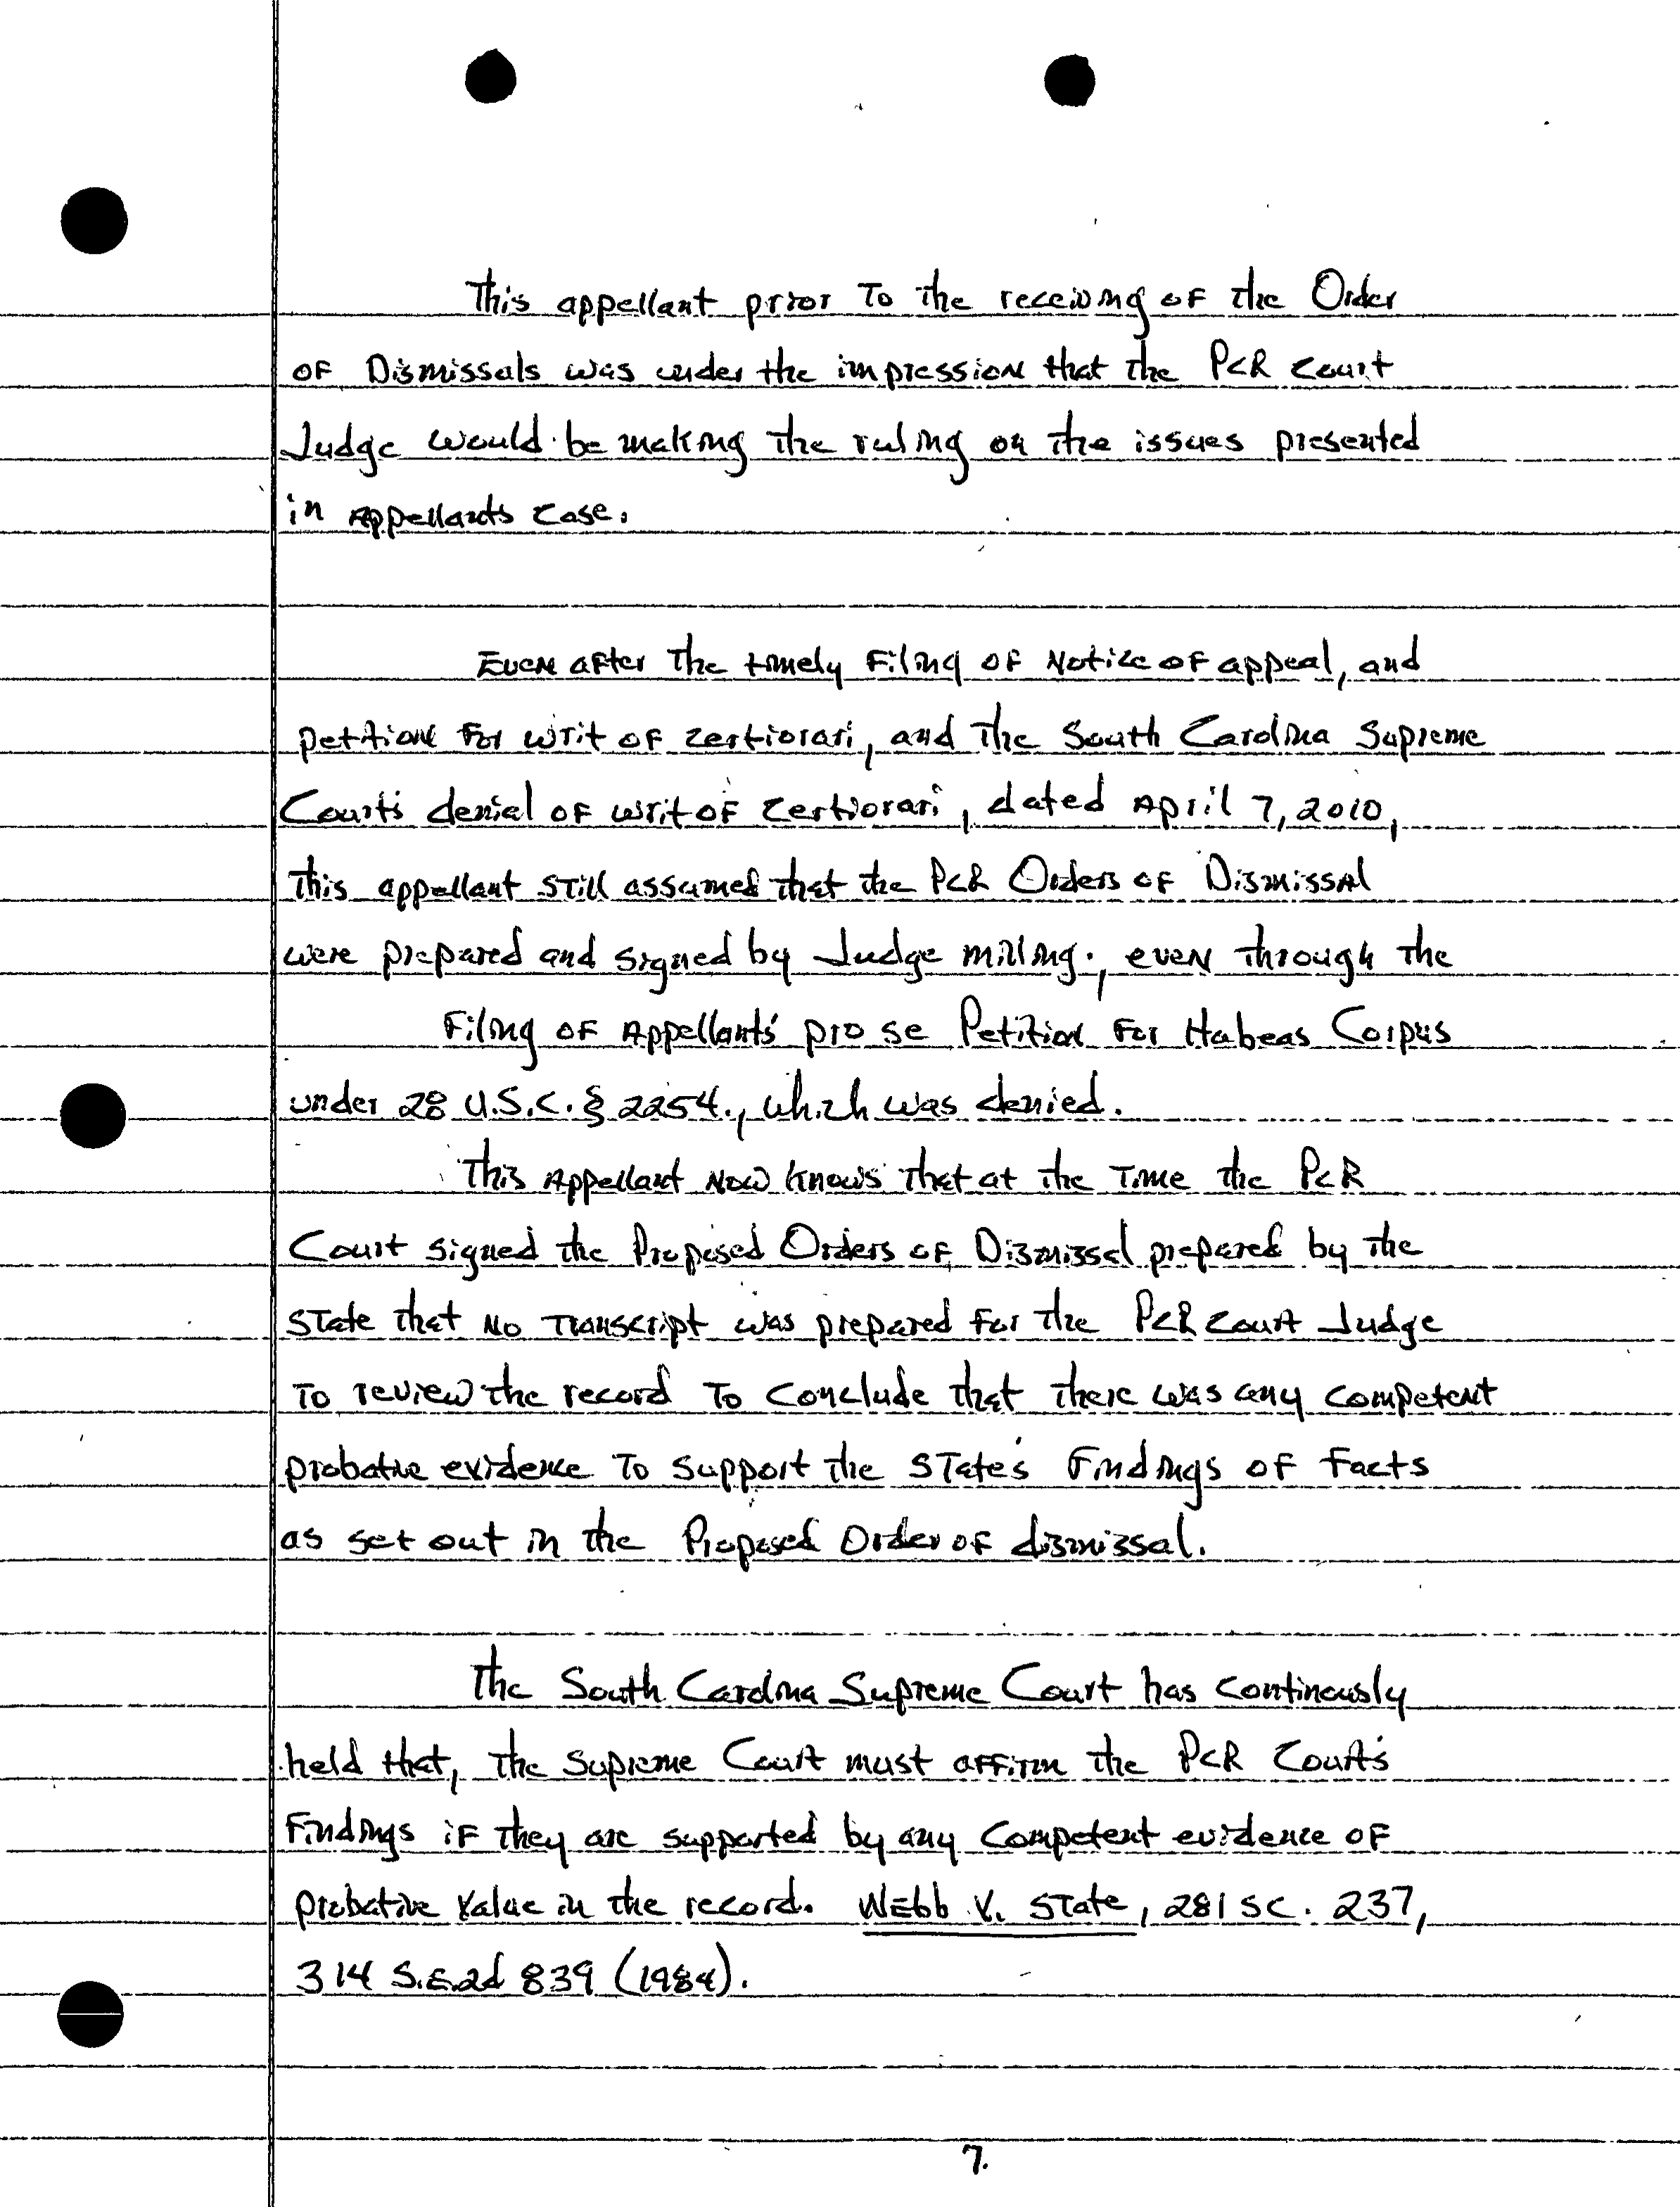 This appellant prior To the receiving of the Order
of Dismissals was under the impression that the PCR Court
Judge would be making the ruling on the issues presented
in Appellants case.
Even after the timely Filing of Notice of appeal, and
petition For writ of certiorari, and the South Carolina Supreme
Court's denial of writ of certiorari, dated April 7, 2010,
this appellant still assumed that the PCR Orders of Dismissal
were prepared and signed by Judge milling., even through the
Filing of Appellants' pro se Petition For Habeas Corpus
under 28 U.S.C. § 2254., which was denied.
This Appellant Now knows that at the Time the PCR
Court signed the Proposed Orders of Dismissal prepared by the
State that No Transcript was prepared for the PCR Court Judge
To review the record To conclude that there was any competent
probative evidence To support the State's Findings of Facts
as set out in the Proposed Order of dismissal.
The South Carolina Supreme Court has continously
held that, the Supreme Court must affirm the PCR Court's
Findings if they are supported by any competent evidence of
probative Value in the record. Webb V. State, 281 SC. 237,
314 S.E.2d 839 (1984).
7.